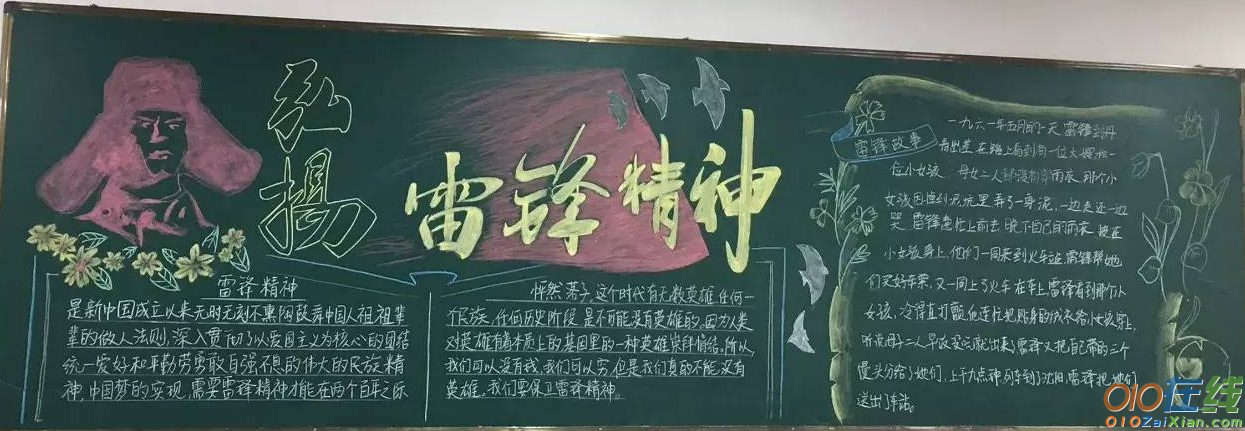 弘揚
雷锋精神
雷锋精神
是新中国成立以来无时无刻不熏陶鼓舞中国人祖祖辈
辈的做人法则,深入贯彻了以爱国主义为核心的团结
统一爱好和平勤劳勇敢自强不息的伟大的民族精
神,中国梦的实现,需要雷锋精神才能在两个百年之际
怦然落子,这个时代有无数英雄,任何一
个民族,任何历史阶段是不可能没有英雄的,因为人类
对英雄有着本质上的基因里的一种英雄崇拜情结。所以,
我们可以没有我,我们可以穷,但是我们真的不能没有
英雄。我们要保卫雷锋精神。
雷锋故事
一九六一年五月的一天 雷锋到丹
出差 在路上看到有一位大嫂和一
位小女孩 母女二人都没有穿雨衣 那个小
女孩因掉到泥坑里弄了一身泥,一边走还一边
哭 雷锋急忙上前去 脱下自己的雨衣 披在
小女孩身上,他们一同来到火车站,雷锋帮她
们买好车票,又一同上了火车 在车上,雷锋看到那个小
女孩,冷得直打颤,他连忙把贴身的绒衣给小女孩穿上,
听说母女二人早饭没吃就出来,雷锋又把自己带的三个
馒头分给了她们,上午九点钟,列车到了沈阳,雷锋把她们
送出了车站。
010在线
010ZaiXian.com